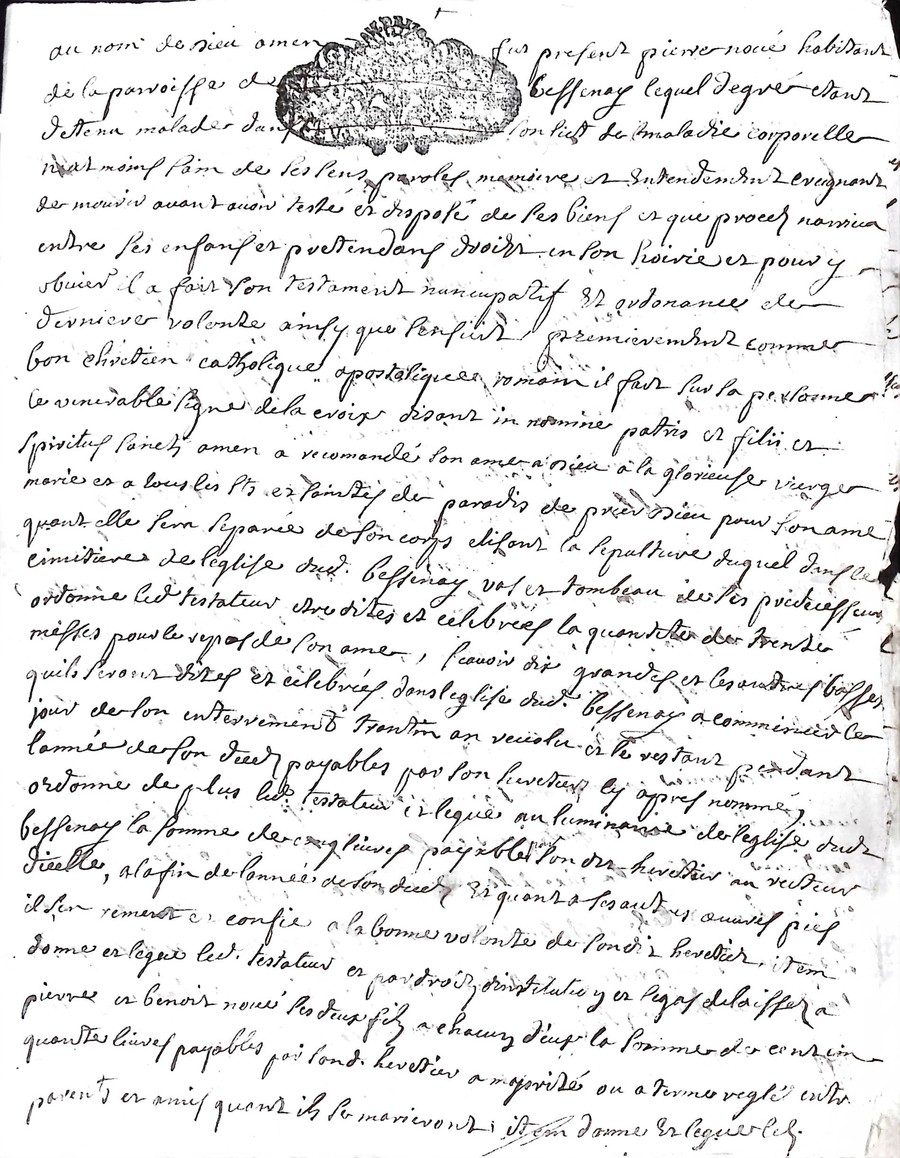 au nom de dieu amen fut present pierre noué habitant
de la parroisse de bessenay lequel de gré etant
detenu malade dans son lict de maladie corporelle
neat moins sain de ses sens, parolles, memoire et entendement creignant
de mourir avant avoir testé et disposé de ses biens et que proces narriva
entre ses enfans et pretendans droict en son hoirie et pour y
obvier il a fait son testament nuncupatif et ordonance de
derniere volonte ainsy que sensuit, premierement comme
bon chretien catholique apostolique romain il fait sur sa personne
le venerable signe de la croix disant in nomine patris et filii et
spiritus sancti amen a recomandé son ame a dieu a la glorieuse vierge
marie et a tous les sts et saintes de paradis de prier dieu pour son ame
quant elle sera separée de son corps elisant la sepulture duquel dans le
cimitiere de leglise dud. bessenay vas et tombeau de ses predecesseurs
ordonne led testateur etre dites et celebrées la quantite de trente
messes pour le repos de son ame, scavoir dix grandes et les autres basses
quils seront dites et celebrées dans leglise dud. bessenay a commencer le
jour de son enterrement trantin an revolu et le restant pendant
lannée de son deces payables par son heretier cy apres nommé,
ordonne de plus led. testateur et legue au luminaire de leglise dudt
bessenay la somme de cinq livres payables son dit heretier au recteur
dicelle, a la fin de lannée de son deces et quant a ses autres œuvres pies
il sen remet et confie a la bonne volonte de sondit heretier, item
donne et legue led. testateur et par droit dinstitution et legas delaisse a
pierre et benoit noué ses deux fils a chacun deux la somme de cent cin
quante livres payables par sond. heretier a majorité ou a terme reglé entre
parents et amis quant ils se marieront, item donne et legue led.